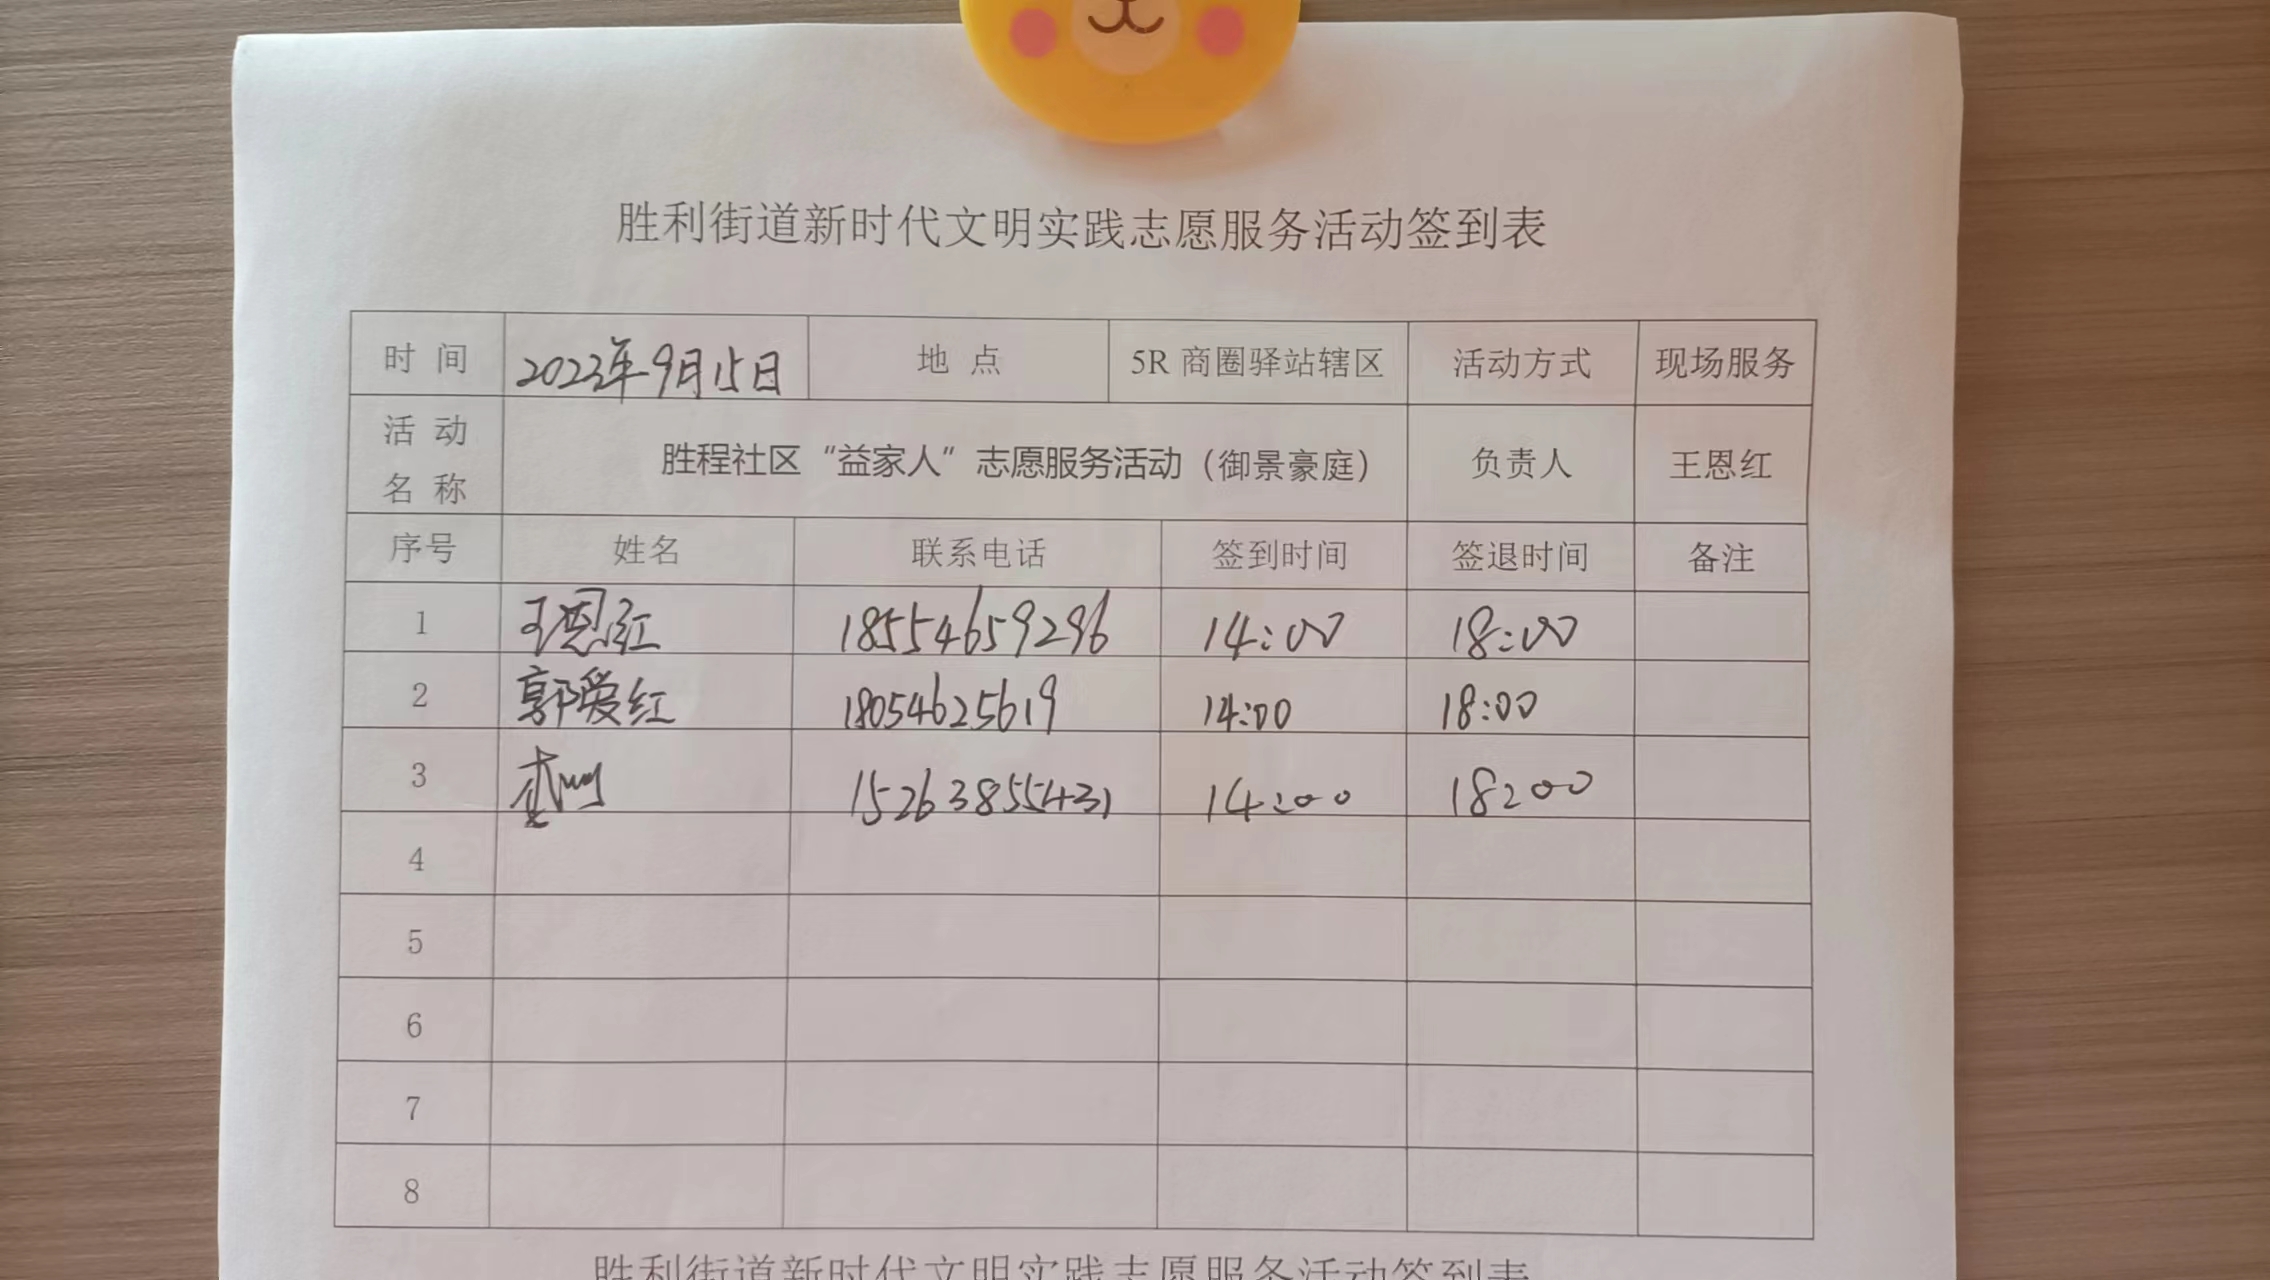 胜利街道新时代文明实践志愿服务活动签到表
时 间 2023年9月15日 地 点 5R 商圈驿站辖区 活动方式 现场服务
活 动 名 称 胜程社区“益家人”志愿服务活动（御景豪庭） 负责人 王恩红
序号 姓名 联系电话 签到时间 签退时间 备注
1 王恩红 18554659296 14:00 18:00
2 郭爱红 18054625619 14:00 18:00
3 15263855431 14:00 18:00
4
5
6
7
8
胜利街道新时代文明实践志愿服务活动签到表